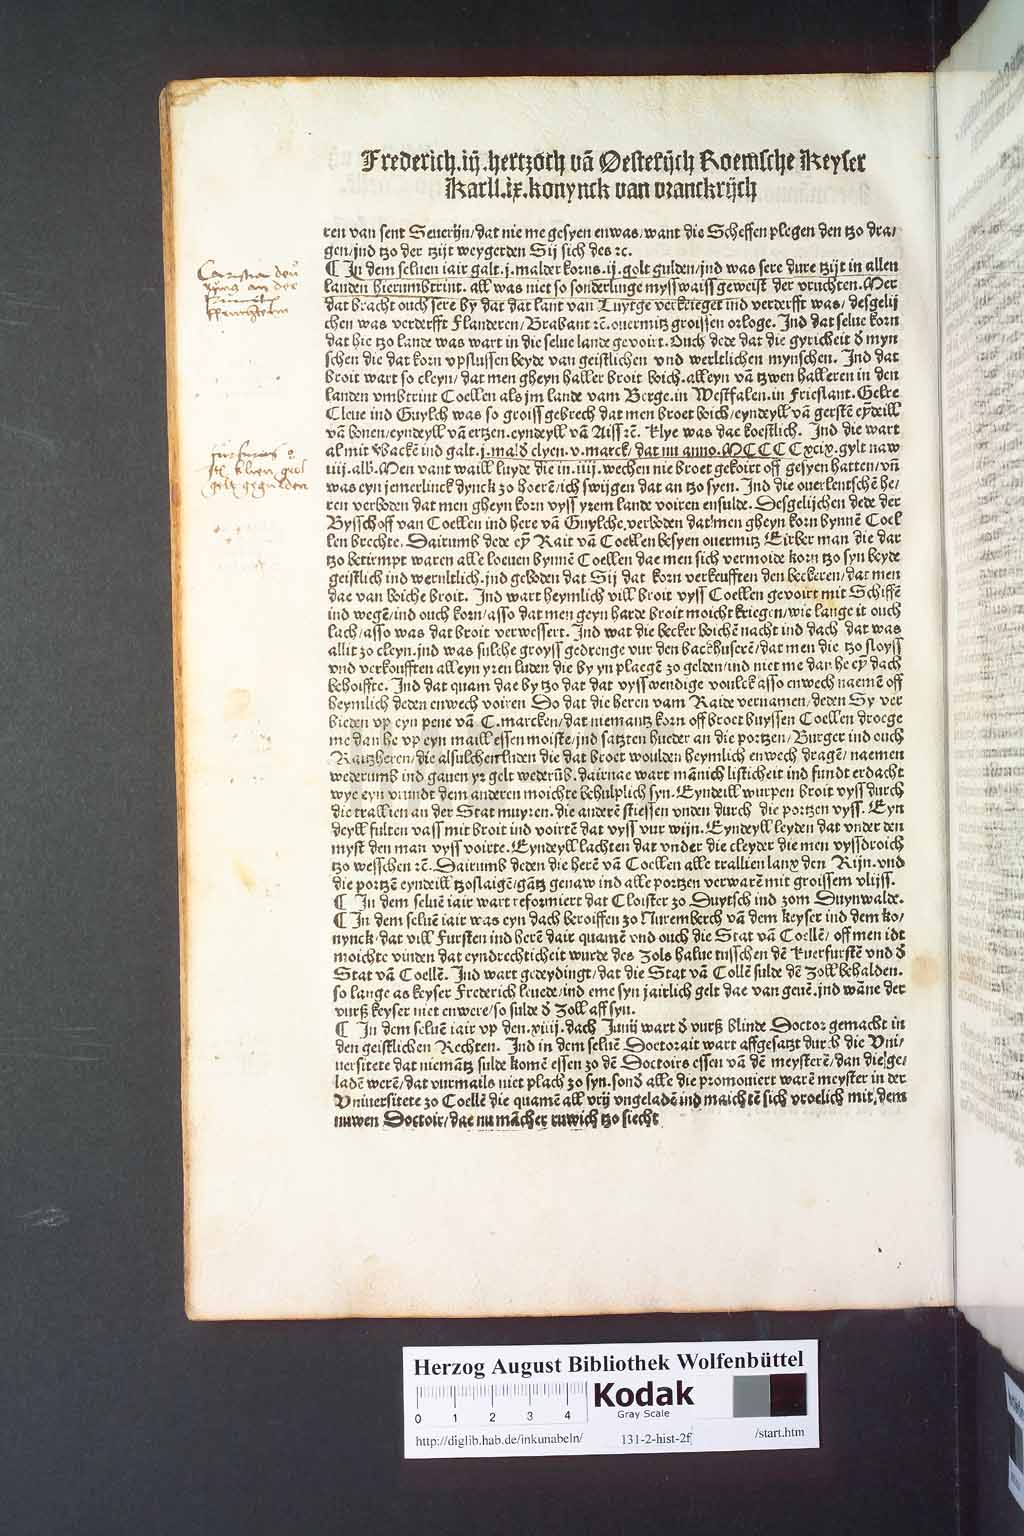 Frederich.iij.hertzoch vā Oestेrijch Roemsche Keyser
Karll.ix.konynck van vranckrijch
ren van sent Seuerijn/dat nie me gesyen enwas/want die Scheffen plegen den tzo dra/
gen/jnd tzo der tzijt weygerden Sij sich des ⁊c.
¶ In dem seluen iair galt.j.malder korns.ij.golt gulden/jnd was sere dure tzijt in allen
landen hierumbtrint. all was niet so sonderlinge mysswaiss geweist der vruchten. Mer
dat bracht ouch sere by dat dat lant van Luytge verkrieget ind verderfft was/ desgelij
chen was verderfft Flanderen/Brabant ⁊c.ouermitz groissen orloge. Ind dat selue korn
dat hie tzo lande was wart in die selue lande gevoirt. Ouch dede dat die gyricheit d̕ myn
schen die dat korn vpslussen beyde van geistlichen vnd werltlichen mynschen. Ind dat
broit wart so cleyn/dat men gheyn haller broit boich.alleyn vā tzwen halleren in den
landen vmbtrint Coellen als jm lande vam Berge.in Westfalen.in Frieslant. Gelre
Cleue ind Guylch was so groiss gebrech dat men broet boich/eyndeyll vā gerstē eyndeill
vā bonen/eyndeyll vā ertzen.eyndeyll vā Aiss ⁊c. Klye was dae koestlich. Ind die wart
al mit Wackē ind galt.j.mald̕ clyen.v.marck/dat nu anno.MCCCCxcix.gylt naw
iiij.alb.Men vant waill luyde die in.iiij.wechen nie broet gekoirt off gesyen hatten/vn̄
was eyn jemerlinck dynck zo hoerē/ich swijgen dat an tzo syen. Ind die ouerlentschē he/
ren verboden dat men gheyn korn vyss yrem lande voiren ensulde. Desgelijchen dede der
Bysschoff van Coellen ind here vā Guylche.verboden dat men gheyn korn bynnē Coel
len brechte. Dairumb dede ey̅ Rait vā Coellen besyen ouermitz Eirber man die dar
tzo betirmpt waren alle loeuen bynnē Coellen dae men sich vermoide korn tzo syn beyde
geistlich ind werntlich.jnd geboden dat Sij dat korn verkeufften den beckeren/dat men
dae van boiche broit. Ind wart heymlich vill broit vyss Coellen gevoirt mit Schiffē
ind wegē/ind ouch korn/asso dat men geyn harde broit moicht kriegen/wie lange it ouch
lach/asso was dat broit verwessert. Ind wat die becker boichē nacht ind dach dat was
allit zo cleyn.jnd was sulche groyss gedrenge vur den bachhuserē/dat men die tzo sloyss
vnd verkoufften alleyn yren luden die by yn plaegē zo gelden/ind niet me dan he ey̅ dach
behoiffte. Ind dat quam dae by tzo dat dat vysswendige voulck asso enwech naemē off
heymlich deden enwech voiren Do dat die heren vam Raide vernamen/deden Sy ver
bieden vp eyn pene vā C.marcken/dat niemantz korn off broet buyssen Coellen droege
me dan he vp eyn maill essen moiste/jnd satzten hueder an die portzen/Burger ind ouch
Raitzheren/die alsulchen luden die dat broet woulden heymlich enwech dragē/naemen
wederumb ind gauen yr gelt wederūb.dairnae wart mānich listicheit ind fundt erdacht
wye eyn vrundt dem anderen moichte behulplich syn. Eyndeill wurpen broit vyss durch
die trallien an der Stat muyren.die anderē stiessen vnden durch die portzen vyss. Eyn
deyll fulten vass mit broit ind voirtē dat vyss vur wijn. Eyndeyll leyden dat vnder den
myst den man vyss voirte. Eyndeyll lachten dat vnder die cleyder die men vyssdroich
tzo wesschen ⁊c. Dairumb deden die herē vā Coellen alle trallien lanx den Rijn.vnd
die portzē eyndeill tzoslaigē/gātz genaw ind alle portzen verwarē mit groissem vlijss.
¶ In dem seluē iair wart reformiert dat Cloister zo Duytsch ind zom Duynwalde.
¶ In dem seluē iair was eyn dach beroiffen zo Nuremberch vā dem keyser ind dem ko/
nynck.dat vill Fursten ind herē dair quamē vnd ouch die Stat vā Coellē/off men idt
moichte vinden dat eyndrechticheit wurde des Zols halue tusschen dē Kuerfurstē vnd d̕
Stat vā Coellē. Ind wart gedeydingt/dat die Stat vā Collē sulde dē Zoll behalden.
so lange as keyser Frederich leuede/ind eme syn jairlich gelt dae van geuē.jnd wāne der
vurß keyser niet enwere/so sulde d̕ Zoll aff syn.
¶ In dem seluē iair vp den.xiiij.dach Junij wart d̕ vurß blinde Doctor gemacht in
den geistlichen Rechten. Ind in dem seluē Doctorait wart affgesatzt durch die Vni/
uersitete dat niemātz sulde komē essen zo dē Doctoirs essen vā dē meysterē/dan die ge/
ladē werē/dat vurmails niet plach zo syn.sond̕ alle die promoniert warē meyster in der
Vniuersitete zo Coellē die quamē all vrij vngeladē ind maichtē sich vroelich mit dem
nuwen Doctoir/dae nu mācher ruwich tzo siecht
Herzog August Bibliothek Wolfenbüttel
Kodak
Gray Scale
0 1 2 3 4
http://diglib.hab.de/inkunabeln/ 131-2-hist-2f /start.htm